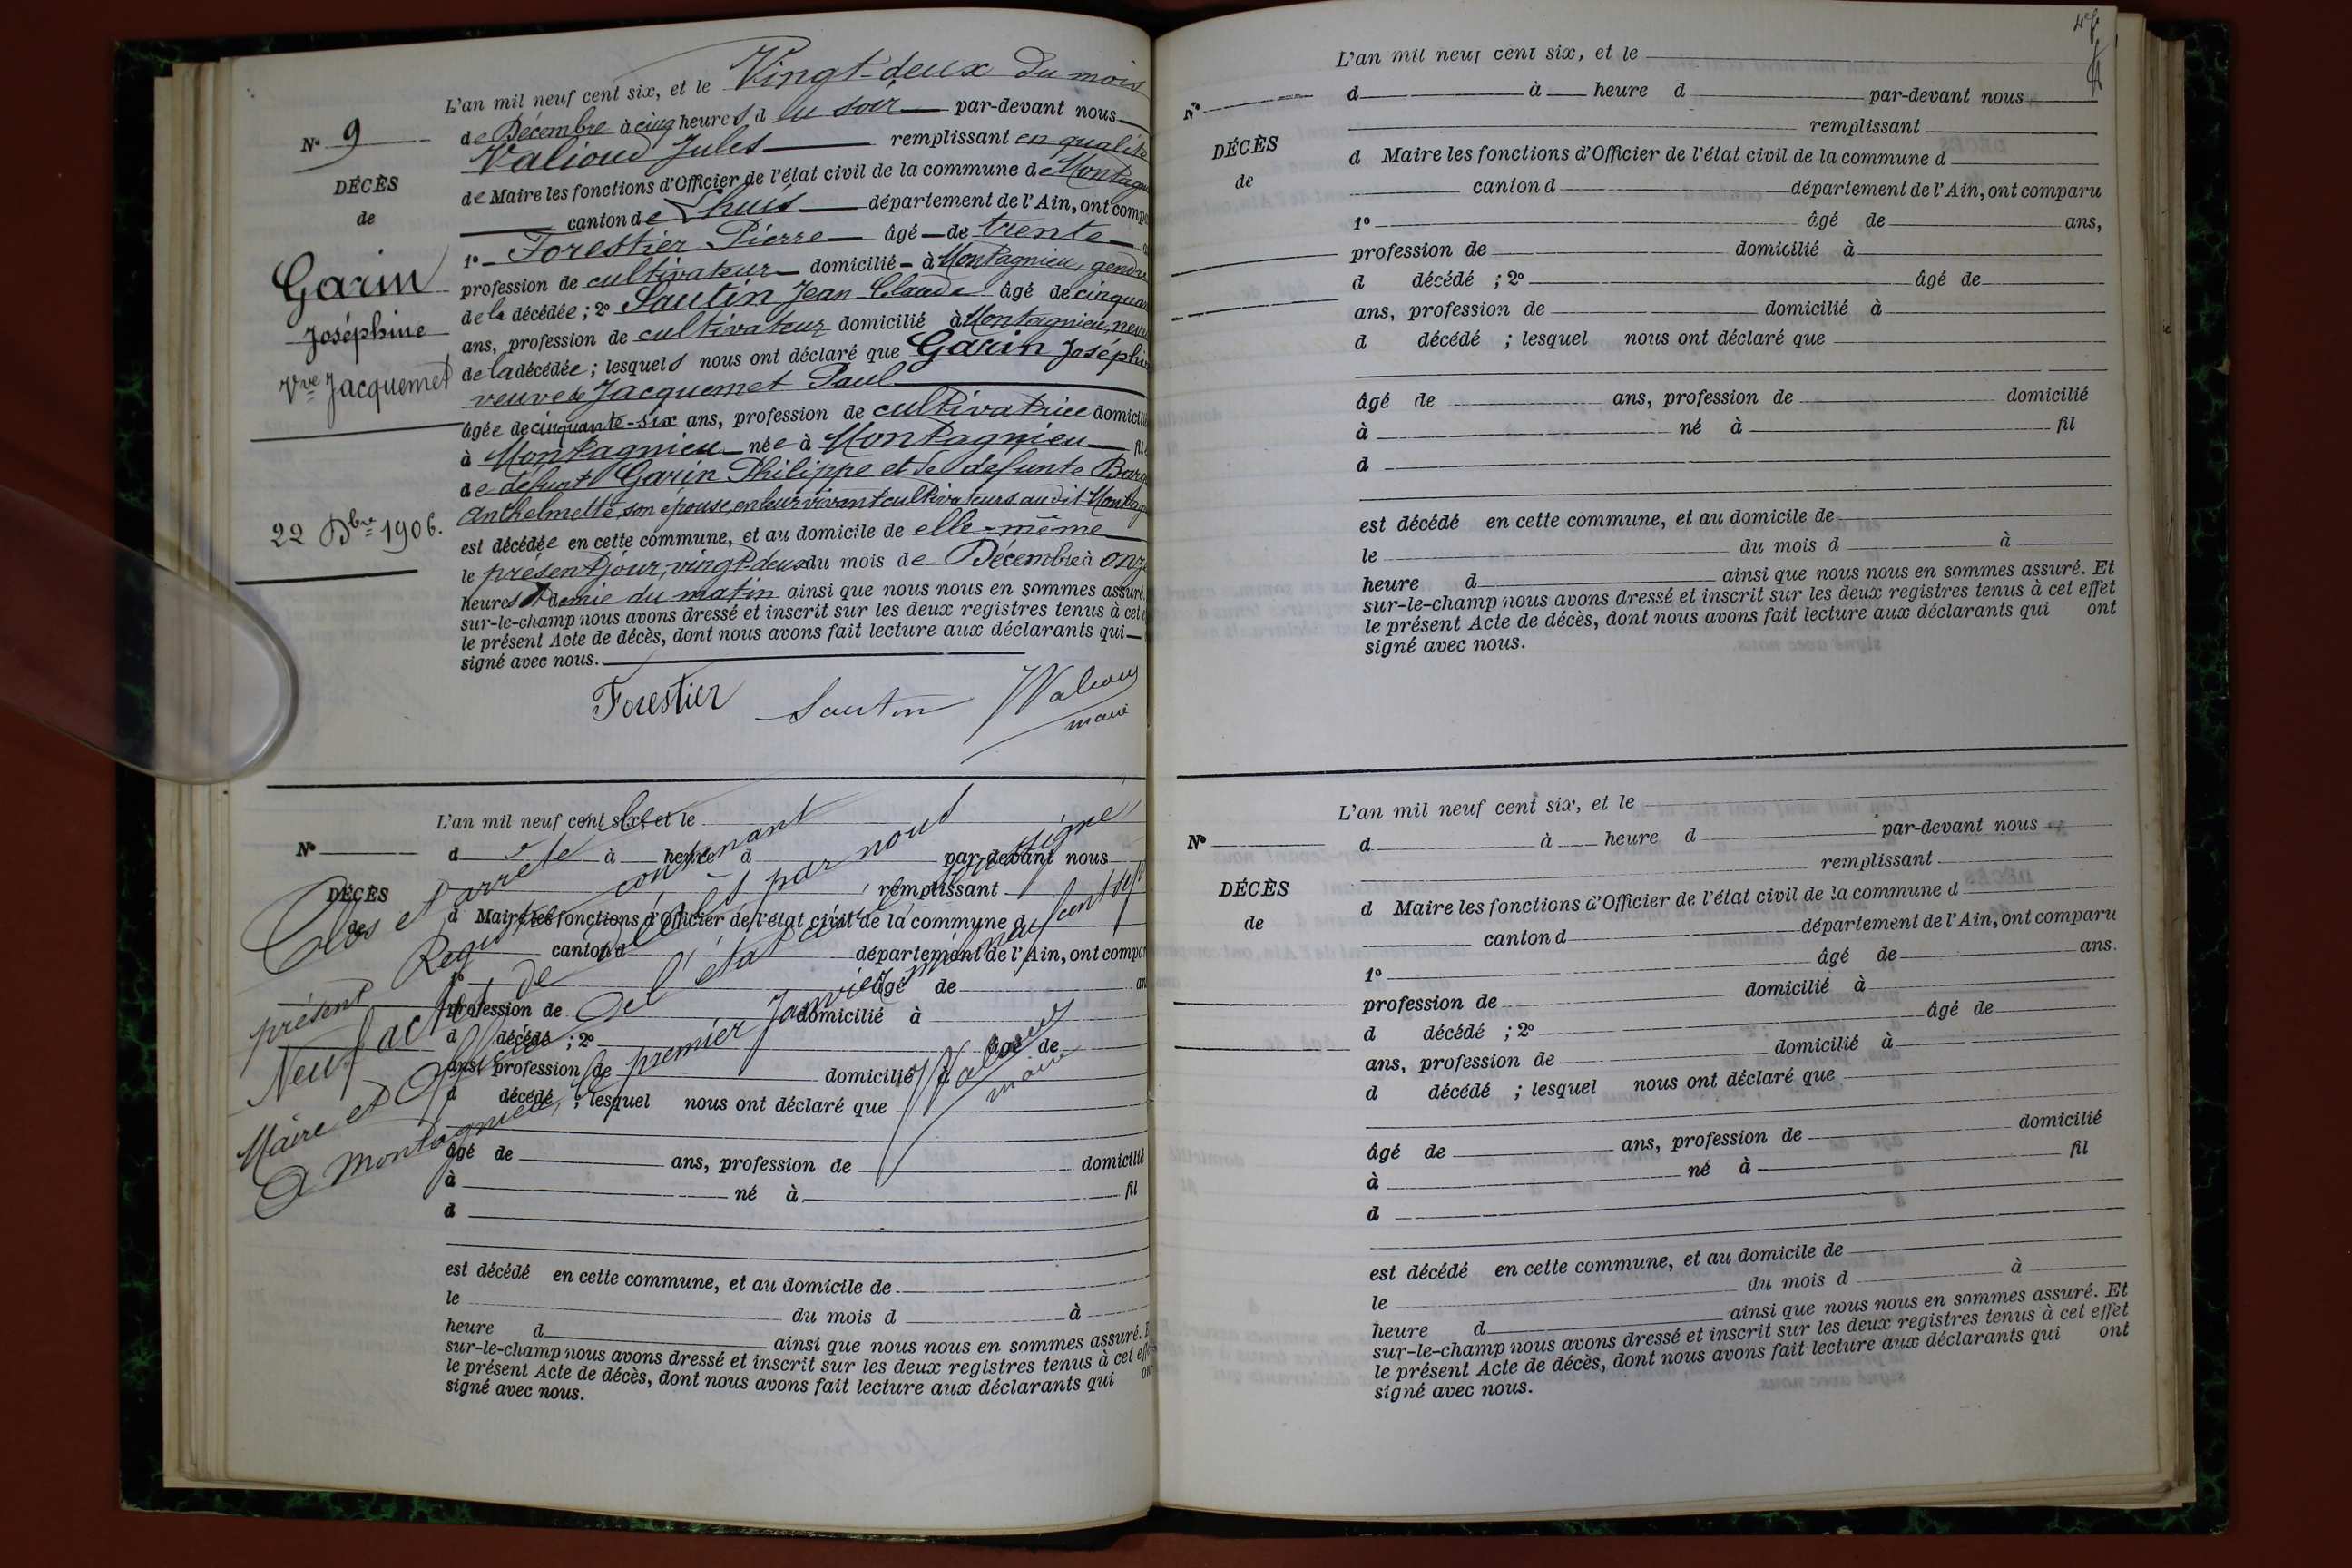 L'an mil neuf cent six, et le Vingt-deux du mois
de Décembre à cinq heures d u soir par-devant nous
Valioud Jules remplissant en qualité
de Maire les fonctions d'Officier de l'état civil de la commune de Montagn
canton de Lhuis département de l'Ain, ont comp
1º Forestier Pierre âgé de trente
profession de cultivateur domicilié à Montagnieu, gendre
de la décédée ; 2º Sautin Jean Claude âgé de cinquan
ans, profession de cultivateur domicilié à Montagnieu, neveu
de la décédée ; lesquels nous ont déclaré que Garin Joséphin
veuve de Jacquemet Paul
âgée de cinquante-six ans, profession de cultivatrice domicili
à Montagnieu née à Montagnieu fil
de défunt Garin Philippe et de défunte Barg
Anthelmette, son épouse, en leur vivant cultivateurs audit Montag
est décédée en cette commune, et au domicile de elle-même
le présent jour, vingt-deux du mois de Décembre à onze
heures demie du matin ainsi que nous nous en sommes assuré.
sur-le-champ nous avons dressé et inscrit sur les deux registres tenus à cet e
le présent Acte de décès, dont nous avons fait lecture aux déclarants qui
signé avec nous.
Forestier Sautin JValioud
maire
Nº 9
DÉCÈS
de
Garin
Joséphine
Vve Jacquemet
22 Dbre 1906.
L'an mil neuf cent six, et le
Nº
d à heure d par-devant nous
remplissant
DÉCÈS
de
d Maire les fonctions d'Officier de l'état civil de la commune d
canton d département de l'Ain, ont compar
1º âgé de an
profession de domicilié à
d décédé ; 2º âgé de
ans, profession de domicilié à
d décédé ; lesquel nous ont déclaré que
âgé de ans, profession de domicilié
à né à fil
d
est décédé en cette commune, et au domicile de
le du mois d à
heure d ainsi que nous nous en sommes assuré. E
sur-le-champ nous avons dressé et inscrit sur les deux registres tenus à cet eff
le présent Acte de décès, dont nous avons fait lecture aux déclarants qui on
signé avec nous.
Clos et arrêté le
présent Registre contenant
Neuf actes de décès par nous
Maire et Officier de l'état civil soussigné
A Montagnieu, le premier Janvier mil neuf cent sept
JValioud
maire
L'an mil neuf cent six, et le
Nº
d à heure d par-devant nous
remplissant
DÉCÈS
de
d Maire les fonctions d'Officier de l'état civil de la commune d
canton d département de l'Ain, ont comparu
1º âgé de ans,
profession de domicilié à
d décédé ; 2º âgé de
ans, profession de domicilié à
d décédé ; lesquel nous ont déclaré que
âgé de ans, profession de domicilié
à né à fil
d
est décédé en cette commune, et au domicile de
le du mois d à
heure d ainsi que nous nous en sommes assuré. Et
sur-le-champ nous avons dressé et inscrit sur les deux registres tenus à cet effet
le présent Acte de décès, dont nous avons fait lecture aux déclarants qui ont
signé avec nous.
L'an mil neuf cent six, et le
Nº
d à heure d par-devant nous
remplissant
DÉCÈS
de
d Maire les fonctions d'Officier de l'état civil de la commune d
canton d département de l'Ain, ont comparu
1º âgé de ans.
profession de domicilié à
d décédé ; 2º âgé de
ans, profession de domicilié à
d décédé ; lesquel nous ont déclaré que
âgé de ans, profession de domicilié
à né à fil
d
est décédé en cette commune, et au domicile de
le du mois d à
heure d ainsi que nous nous en sommes assuré. Et
sur-le-champ nous avons dressé et inscrit sur les deux registres tenus à cet effet
le présent Acte de décès, dont nous avons fait lecture aux déclarants qui ont
signé avec nous.